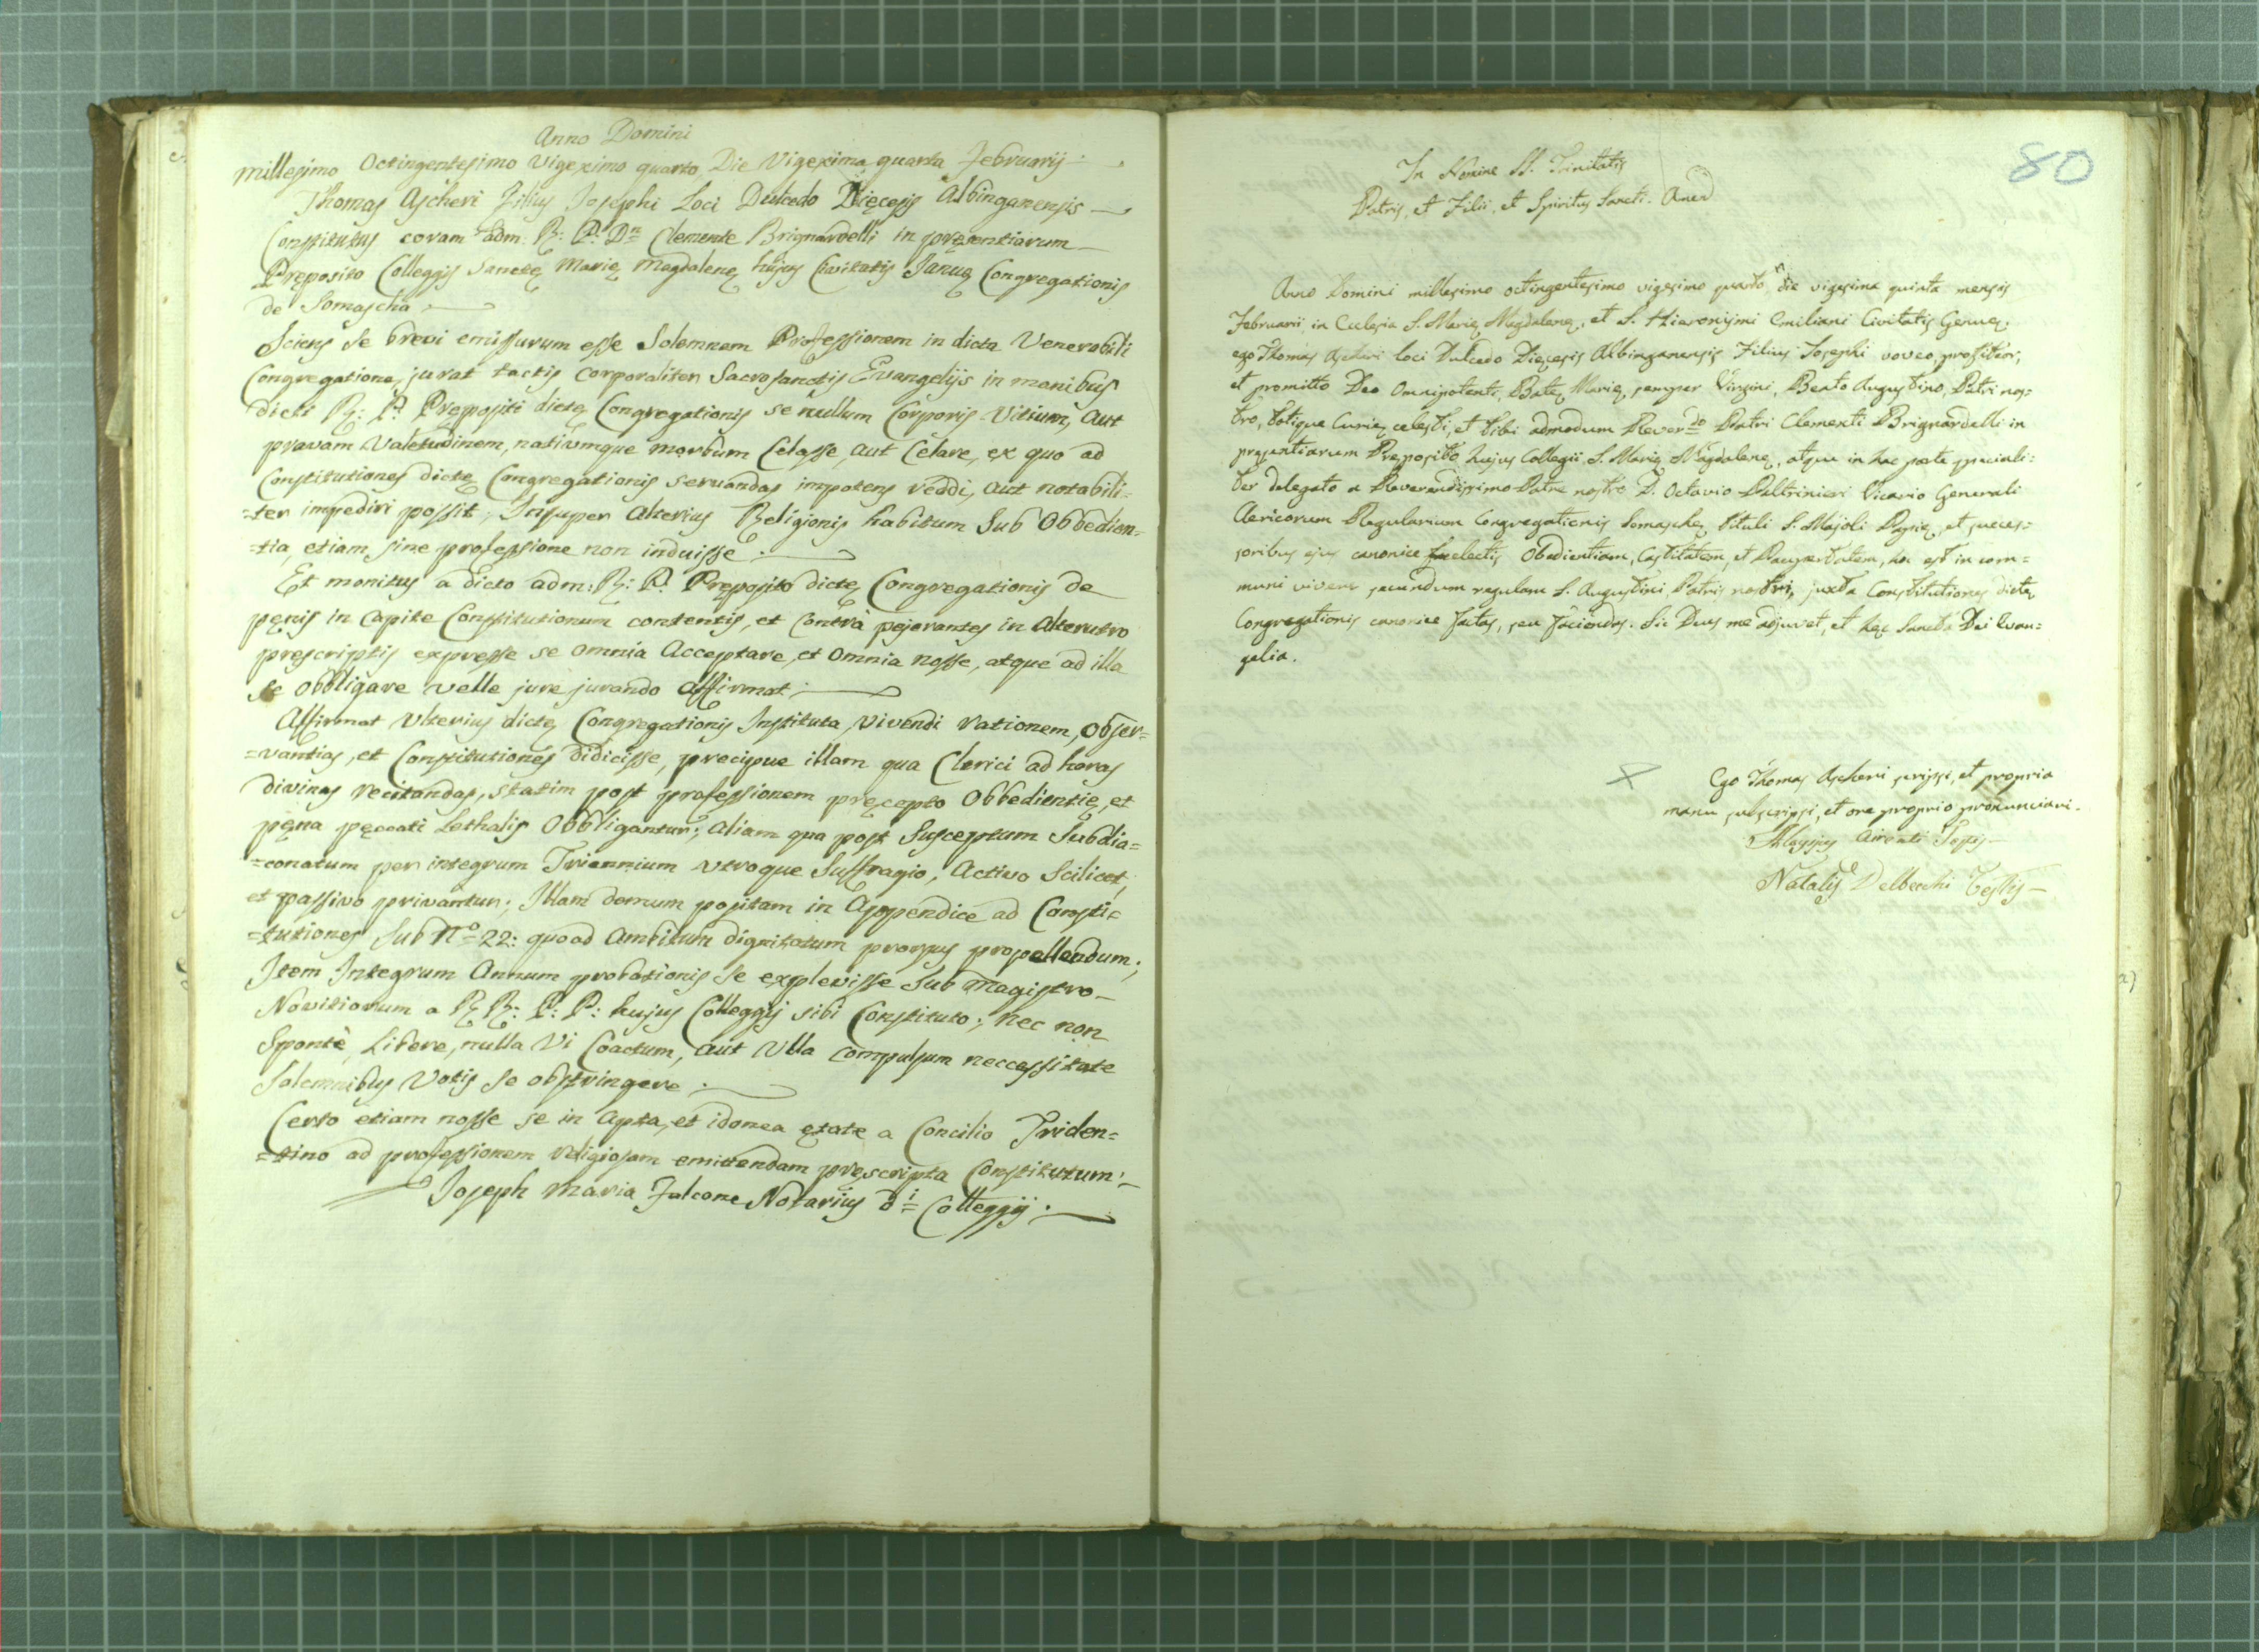 Anno Domini
millesimo Octingentesimo Vigeximo quarto Die Vigexima quarta Februarij
Thomas Ascheri Filius Josephi Loci Dulcedo Dięcesis Albinganensis
Constitutus coram adm: R: P: Dn Clemente Brignardelli in pręsentiarum
Pręposito Colleggij Sanctę Marię Magdalenę hujus Civitatis Januę Congregationis
de Somascha
Sciens se brevi emissurum esse Solemnem Professionem in dicta Venerabili
Congregatione, jurat tactis corporaliter Sacrosanctis Evangelijs in manibus
dicti R: P: Prępositi dictę Congregationis se nullum Corporis Vitium, aut
pravam Valetudinem, nativumque morbum Celasse, aut Celare, ex quo ad
Constitutiones dictę Congregationis servandas impotens reddi, aut notabili=
=ter impediri possit; Insuper Alterius Religionis habitum Sub Obbedien=
=tia, etiam sine professione non induisse.
Et monitus a dicto adm: R: P: Pręposito dictę Congregationis de
pęnis in Capite Constitutionum contentis, et Contrà pejerantes in Alterutro
prescriptis expresse se omnia Acceptare, et omnia nosse, atque ad illa
se obbligare velle jure jurando affirmat.
Affirmat Ulterius dictę Congregationis Instituta, vivendi rationem, Obser=
=vantias, et Constitutiones didicisse, precipue illam qua Clerici ad horas
divinas recitandas, statim post professionem pręcepto Obbedientię, et
pęna pęccati Lethalis Obbligantur; aliam qua post Susceptum Subdia=
=conatum per integrum Triennium utroque Suffragio, Activo Scilicet,
et passivo privantur; Illam demum positam in Appendice ad Consti=
=tutiones Sub No 22: quoad Ambitum dignitatum prorsus propellendum;
Item Integrum Annum probationis se explevisse Sub Magistro
Novitiorum a R R: P: P: hujus Colleggij sibi Constituto; nec non
Spontè, Libere, nulla Vi Coactum, aut Ulla compulsum neccessitate
Solemnibus Votis se obstringere.
Certo etiam nosse se in Apta, et idonea ętate a Concilio Triden=
=tino ad professionem religiosam emittendam pręscripta Constitutum:
Joseph Maria Falcone Notarius di Colleggij.
80
In Nomine SS. Trinitatis
Patris, et Filii, et Spiritus Sancti. Amen
Anno Domini millesimo octingentesimo vigesimo quarto, die vigesima quinta mensis
Februarii in Ecclesia S. Marię Magdalenę, et S. Hieronijmi Emiliani Civitatis Genuę.
ego Thomas Ascheri loci Dulcedo Dięcesis Albinganensis Filius Josephi voveo, profiteor,
et promitto Deo Omnipotenti, Batę Marię, semper Virgini, Beato Augustino, Patri nos=
tro, totique Curię celesti, et tibi admodum Reverdo Patri Clementi Brignardelli in
pręsentiarum Pręposito hujus Collegii S. Marię Magdalenę, atque in hac parte speciali=
ter delegato a Reverendissimo Patre nostro D. Octavio Paltrinieri Vicario Generali
Clericorum Regularium Congregationis Somaschę tituli S. Majoli Papię, et succes=
soribus ejus canonice electis Obedientiam, Castitatem, et Paupertatem, hoc est in com=
muni vivere secundum regulam S. Augustini, Patris nostri, juxta Constitutiones dictę
Congregationis canonice factas, seu faciendas. Sic Deus me adjuvet, et hęc Sancta Dei Evan=
gelia.
Ego Thomas Ascheri scripsi, et propria
manu subscripsi, et ore proprio pronunciavi.
Airenti Testis
Natalis Delbecchi Testis